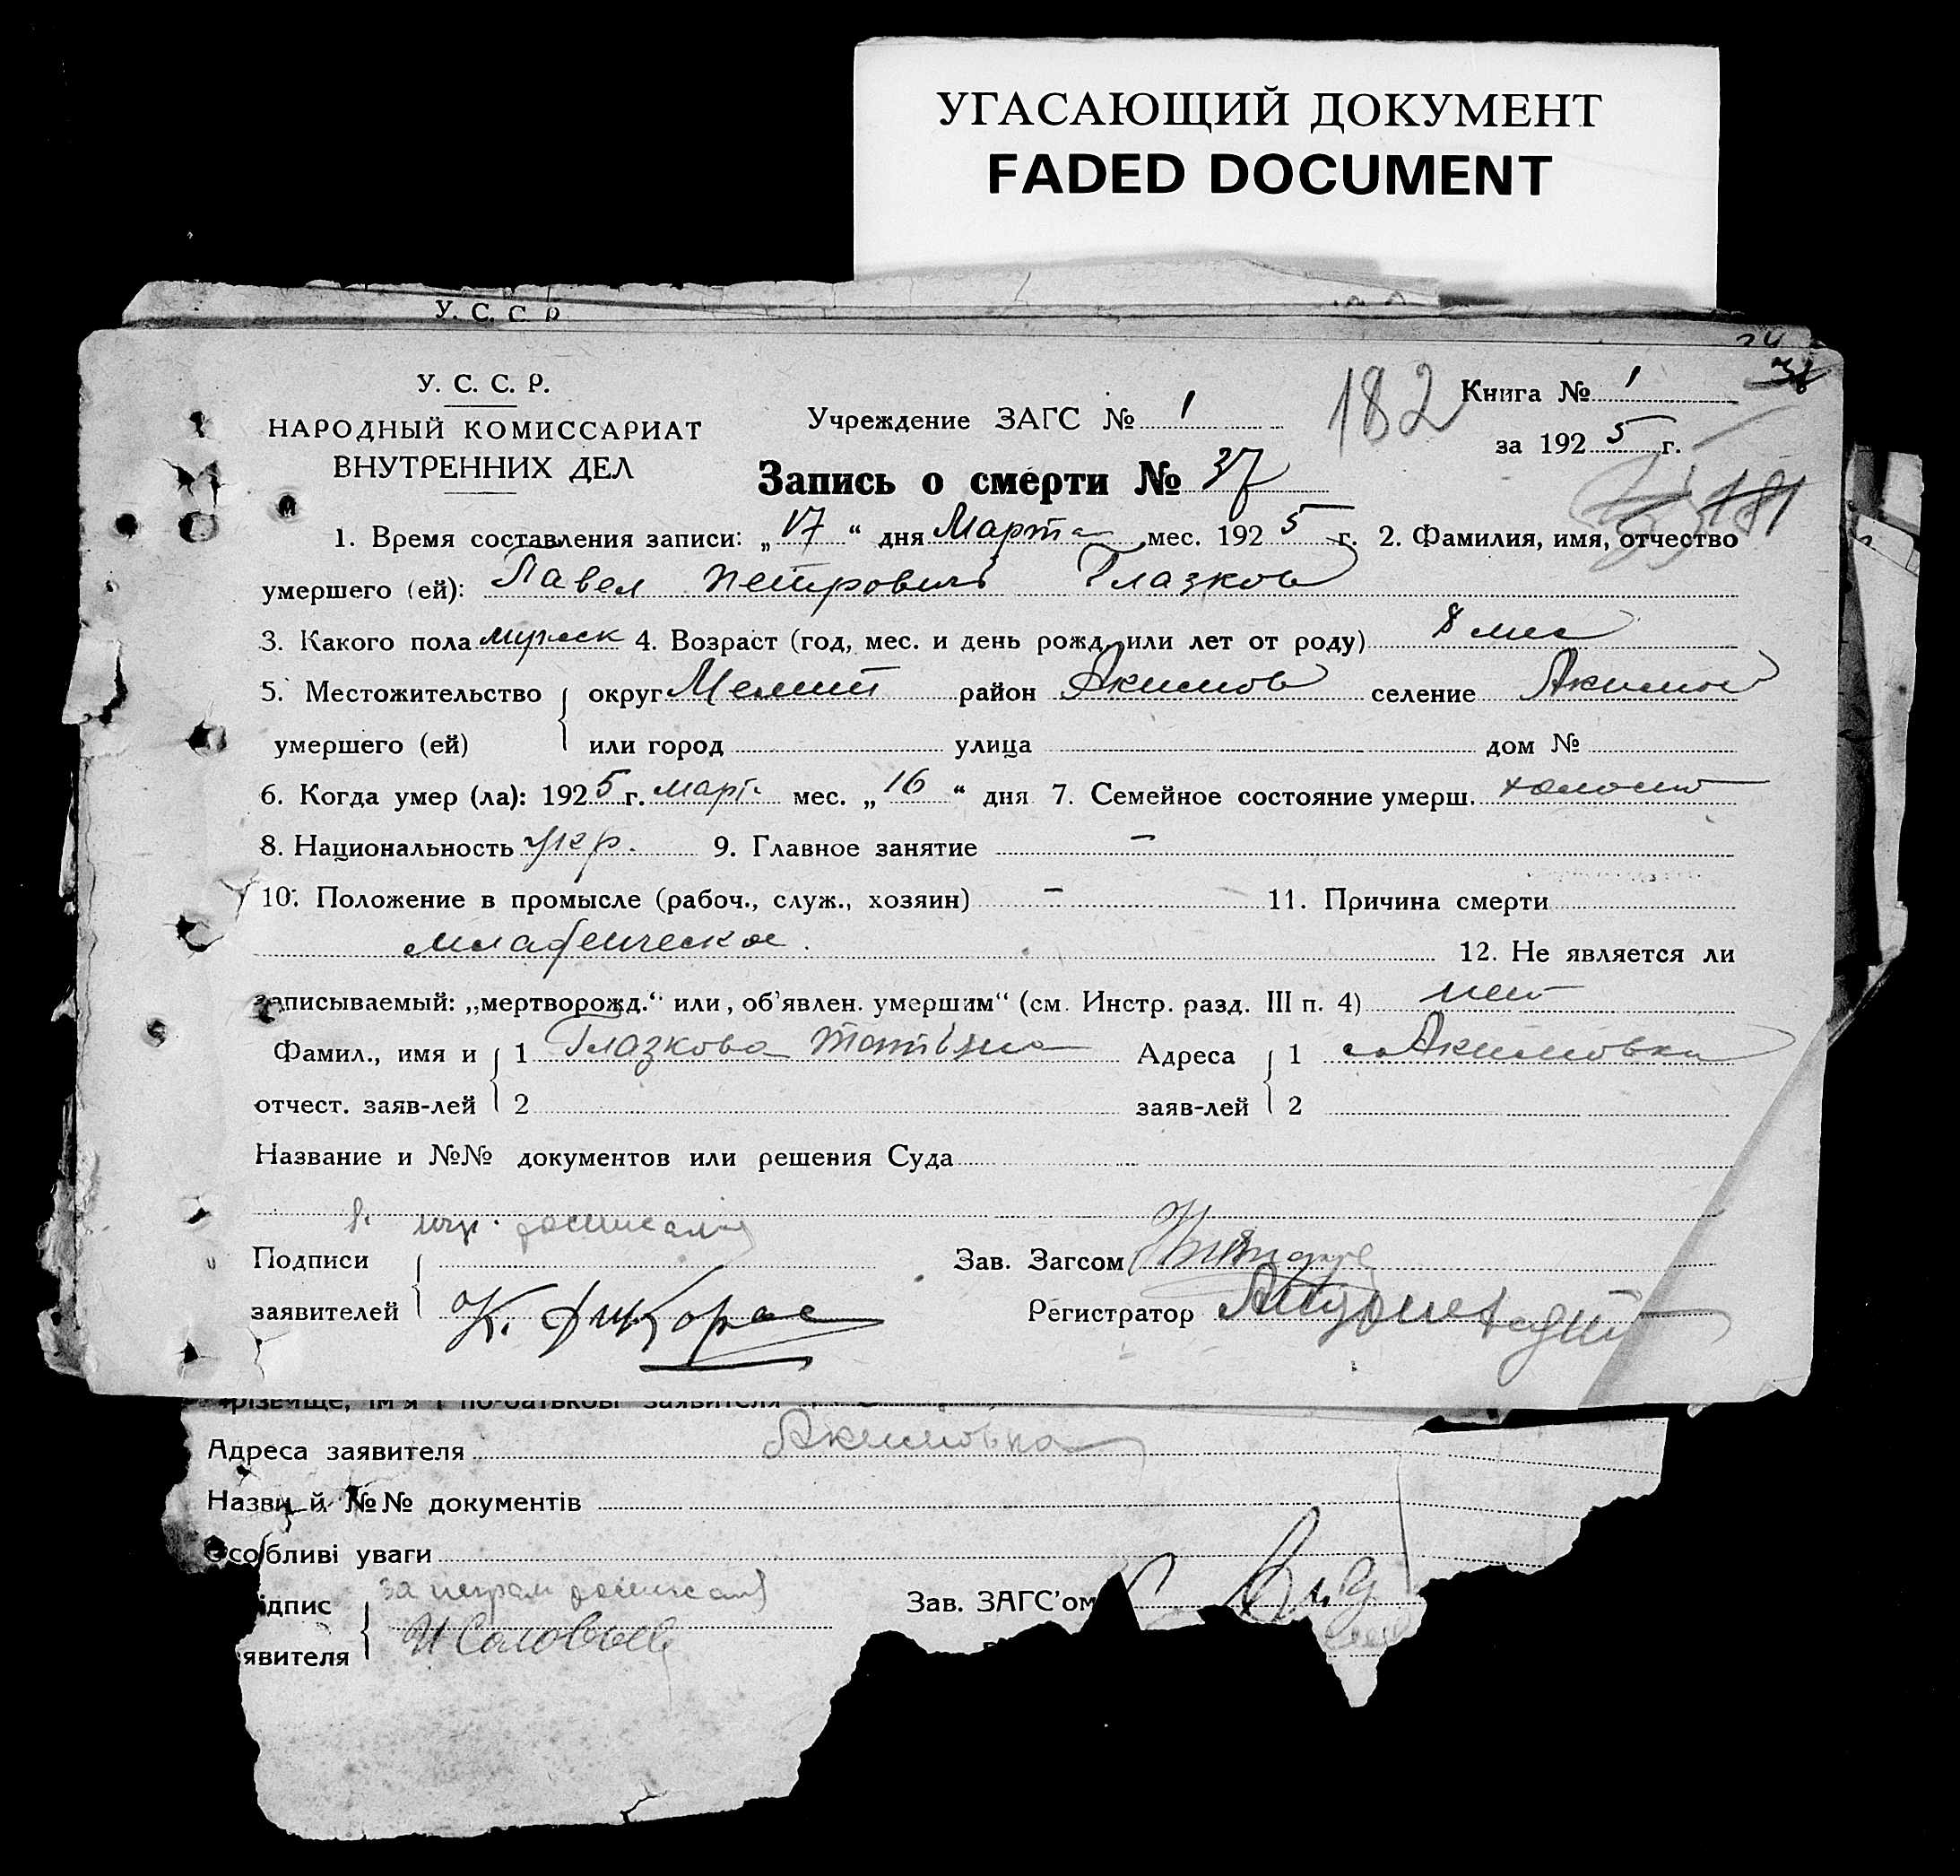 УГАСАЮЩИЙ ДОКУМЕНТ
FADED DOCUMENT
У. С. С. Р.
У. С. С. Р.
НАРОДНЫЙ КОМИССАРИАТ
ВНУТРЕННИХ ДЕЛ
Учреждение ЗАГС № 1
182
Книга № 1
за 1925 г.
Запись о смерти № 37
181
1. Время составления записи: „17“ дня Марта мес. 1925 г. 2. Фамилия, имя, отчество
умершего (ей): Павел Петрович Глазков
3. Какого пола мужск 4. Возраст (год, мес. и день рожд. или лет от роду) 8 мес
5. Местожительство округ Мелит район Акимов селение Акимов
умершего (ей) или город улица дом №
6. Когда умер (ла): 1925 г. март. мес. „16“ дня 7. Семейное состояние умерш. холост
8. Национальность укр. 9. Главное занятие –
10. Положение в промысле (рабоч., служ., хозяин) – 11. Причина смерти
младенческое. 12. Не является ли
записываемый: „мертворожд.“ или „об'явлен. умершим“ (см. Инстр. разд. III п. 4) нет
Фамил., имя и 1 Глазкова Татьяна Адреса 1 с. Акимовка
отчест. заяв-лей 2 заяв-лей 2
Название и №№ документов или решения Суда
Подписи Зав. Загсом
заявителей Регистратор
Прізвище, ім'я і по-батькові заявителя
Адреса заявителя Акимовка
Назви й №№ документів
Особливі уваги
Підпис Зав. ЗАГС'ом
заявителя И Соловьев